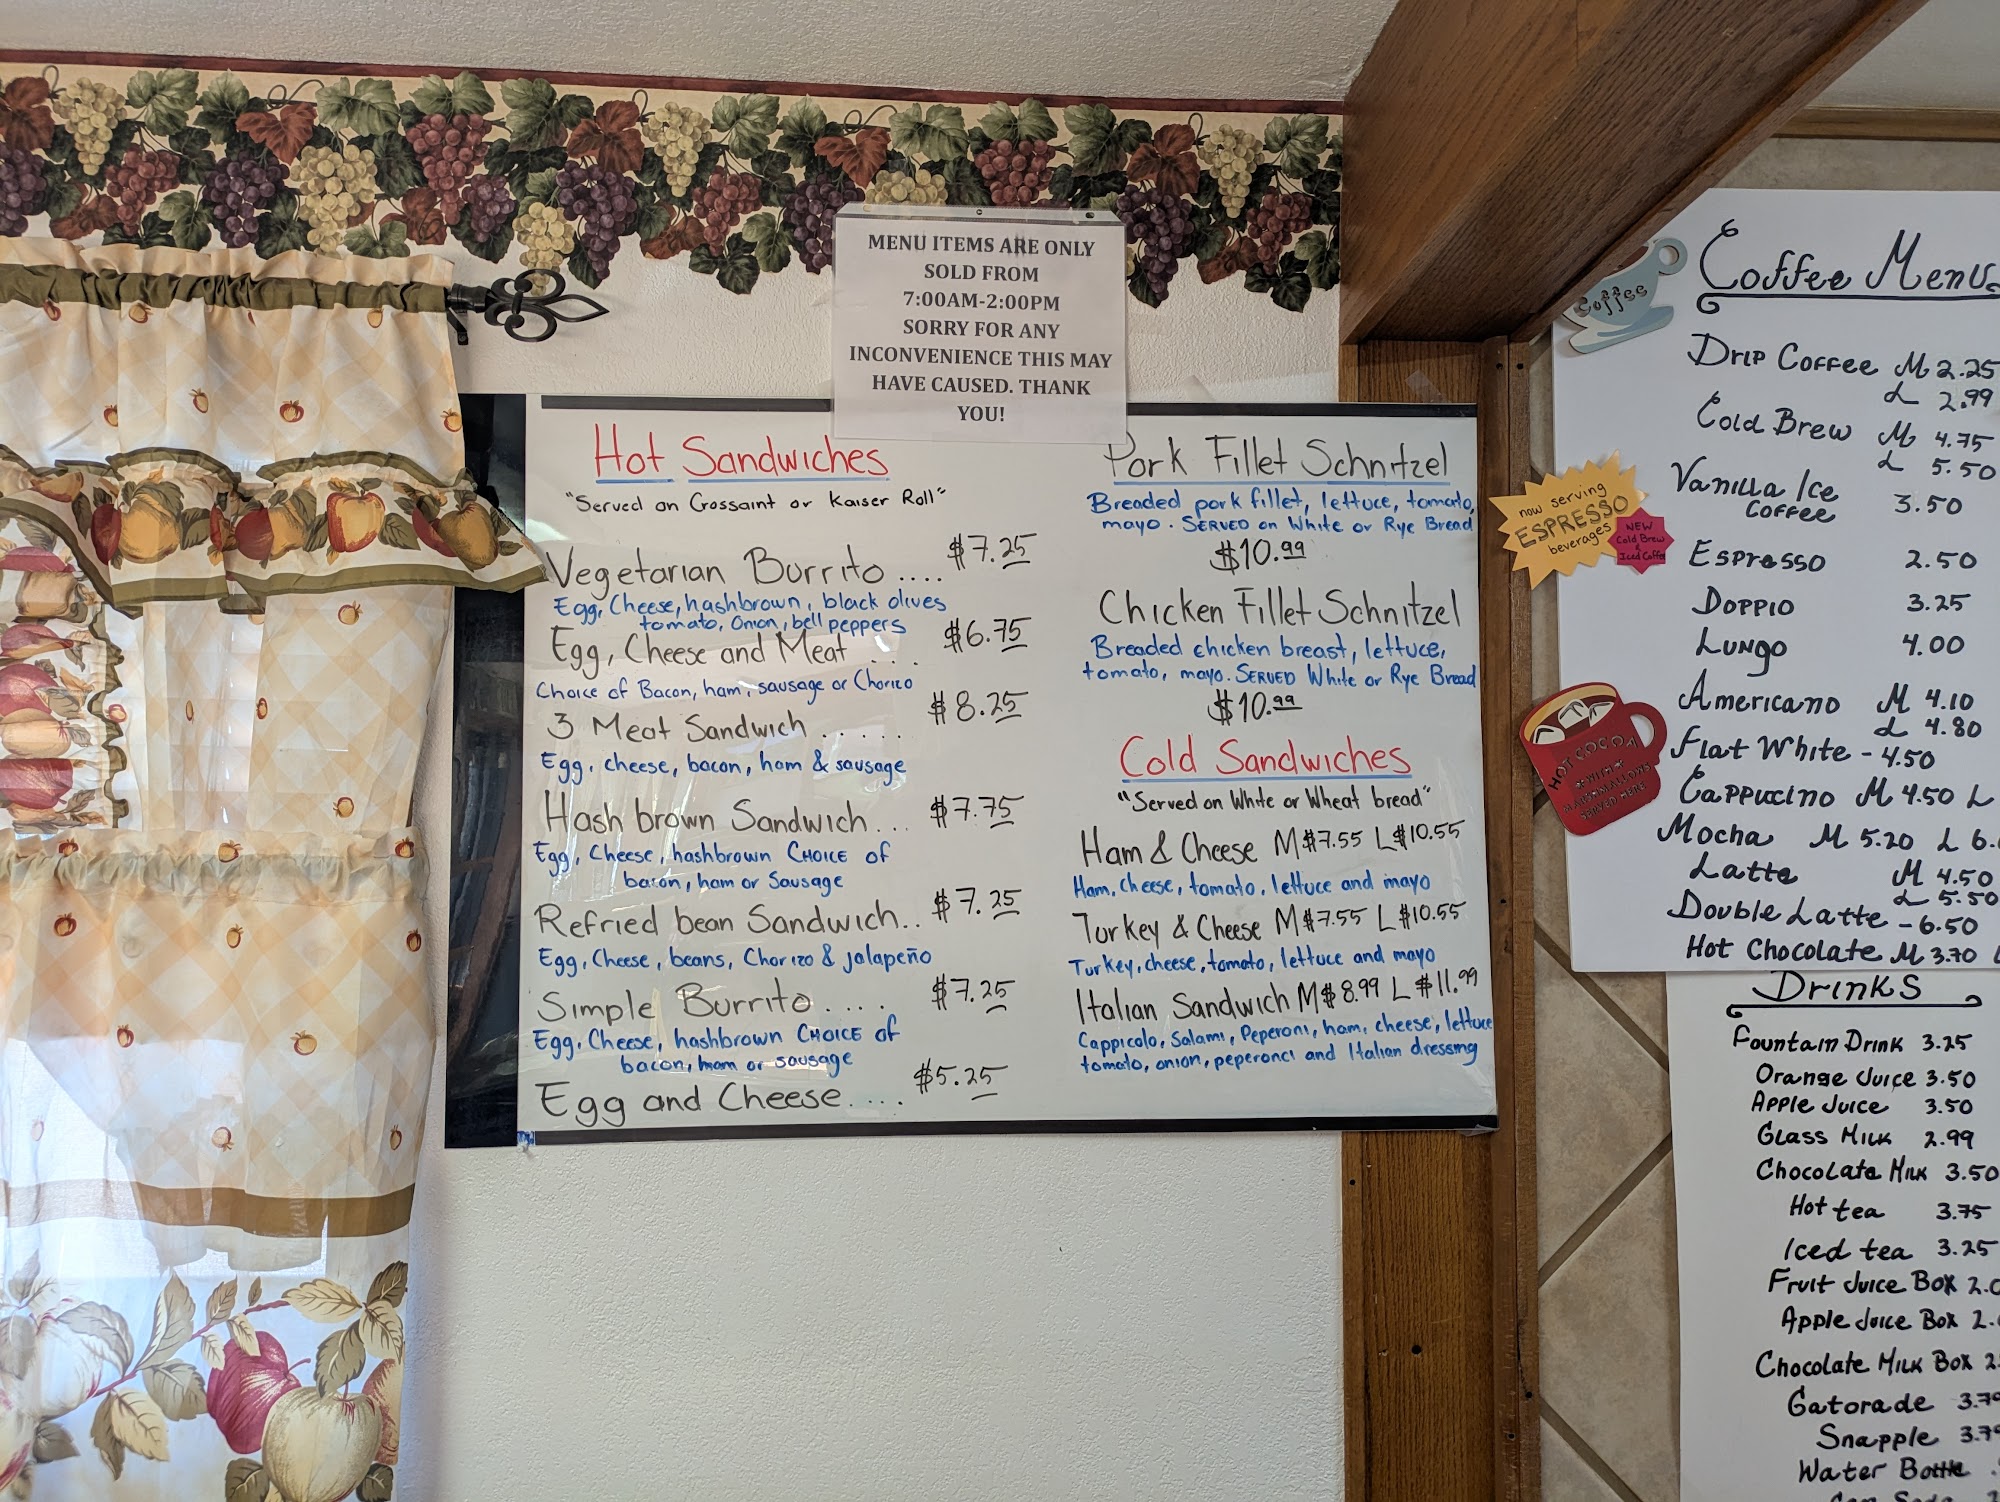 MENU ITEMS ARE ONLY
SOLD FROM
7:00AM-2:00PM
SORRY FOR ANY
INCONVENIENCE THIS MAY
HAVE CAUSED. THANK
YOU!
Hot Sandwiches
"Served on Crossaint or Kaiser Roll"
Vegetarian Burrito .... $7.25
Egg, Cheese, hashbrown, black olives
tomato, Onion, bell peppers
Egg, Cheese and Meat . . . $6.75
Choice of Bacon, ham, sausage or Chorizo
3 Meat Sandwich . . . . . $8.25
Egg, cheese, bacon, ham & sausage
Hash brown Sandwich... $7.75
Egg, Cheese, hashbrown CHOICE of
bacon, ham or Sausage
Refried bean Sandwich.. $7.25
Egg, Cheese, beans, Chorizo & jalapeño
Simple Burrito .... $7.25
Egg, Cheese, hashbrown CHOICE of
bacon, ham or sausage
Egg and Cheese .... $5.25
Pork Fillet Schnitzel
Breaded pork fillet, lettuce, tomato,
mayo. SERVED on White or Rye Bread
$10.99
Chicken Fillet Schnitzel
Breaded chicken breast, lettuce,
tomato, mayo. SERVED White or Rye Bread
$10.99
Cold Sandwiches
"Served on White or Wheat bread"
Ham & Cheese M$7.55 L$10.55
Ham, cheese, tomato, lettuce and mayo
Turkey & Cheese M$7.55 L$10.55
Turkey, cheese, tomato, lettuce and mayo
Italian Sandwich M$8.99 L$11.99
Cappicolo, Salami, Peperoni, ham, cheese, lettuce
tomato, onion, peperonci and Italian dressing
Coffee
Coffee Menu
Drip Coffee M 2.25
L 2.99
Cold Brew M 4.75
L 5.50
Vanilla Ice
Coffee 3.50
now serving
ESPRESSO
beverages
NEW
Cold Brew
&
Iced Coffee
Espresso 2.50
Doppio 3.25
Lungo 4.00
Americano M 4.10
L 4.80
Flat White - 4.50
Cappuccino M 4.50 L
Mocha M 5.20 L 6.
Latte M 4.50
L 5.50
Double Latte - 6.50
Hot Chocolate M 3.70 L
HOT COCOA
WITH
MARSHMALLOWS
SERVED HERE
Drinks
Fountain Drink 3.25
Orange Juice 3.50
Apple Juice 3.50
Glass Milk 2.99
Chocolate Milk 3.50
Hot tea 3.75
Iced tea 3.25
Fruit Juice Box 2.0
Apple Juice Box 2.
Chocolate Milk Box 2
Gatorade 3.79
Snapple 3.79
Water Bottle